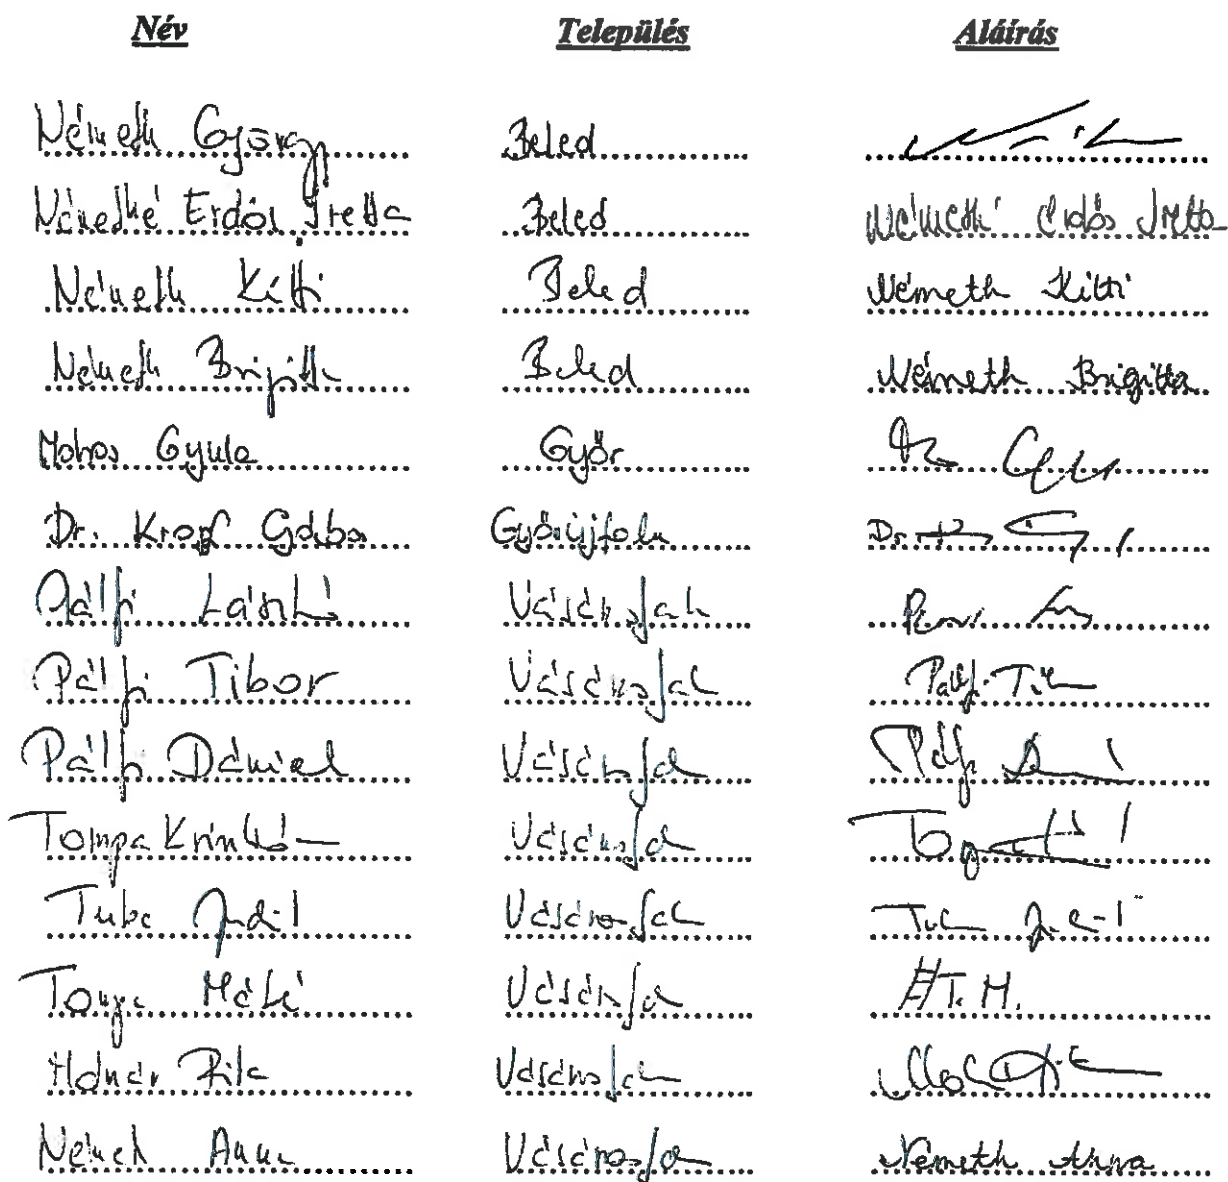 Név Település Aláírás
Németh György Beled
Némethné Erdős Ivetta Beled Némethné Erdős Ivetta
Németh Kitti Beled Németh Kitti
Németh Brigitta Beled Németh Brigitta
Mohos Gyula Győr
Dr. Kropf Gábor Győrújfalu Dr.
Pálfi László Vásárosfalu
Pálfi Tibor Vásárosfalu Pálfi Tibor
Pálfi Dániel Vásárosfalu Pálfi Dániel
Tompa Krisztián Vásárosfalu
Tuba Judit Vásárosfalu Tuba Judit
Tompa Máté Vásárosfalu T. M.
Molnár Rita Vásárosfalu
Németh Anna Vásárosfalu Németh Anna